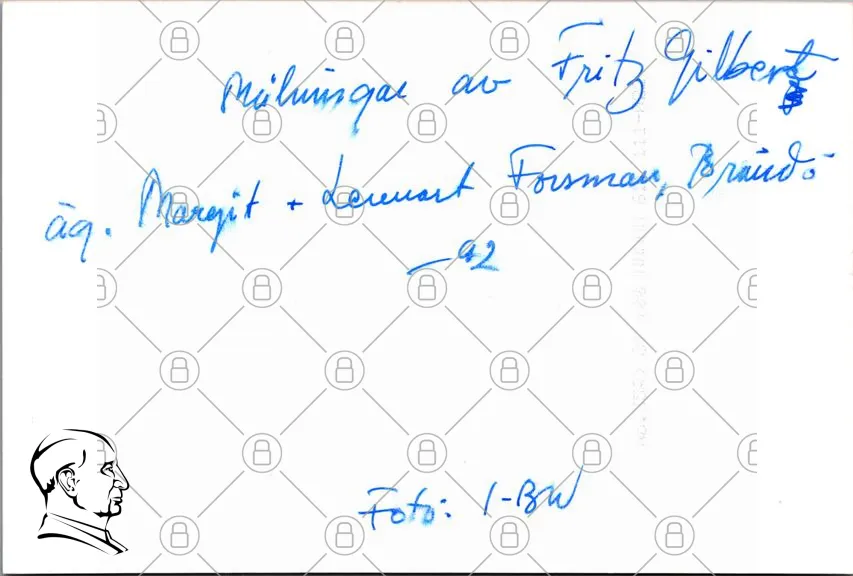 Målningar av Fritz Gilbert
äg. Margit + Lennart Forsman, Brändö
-92
Foto: I-BW